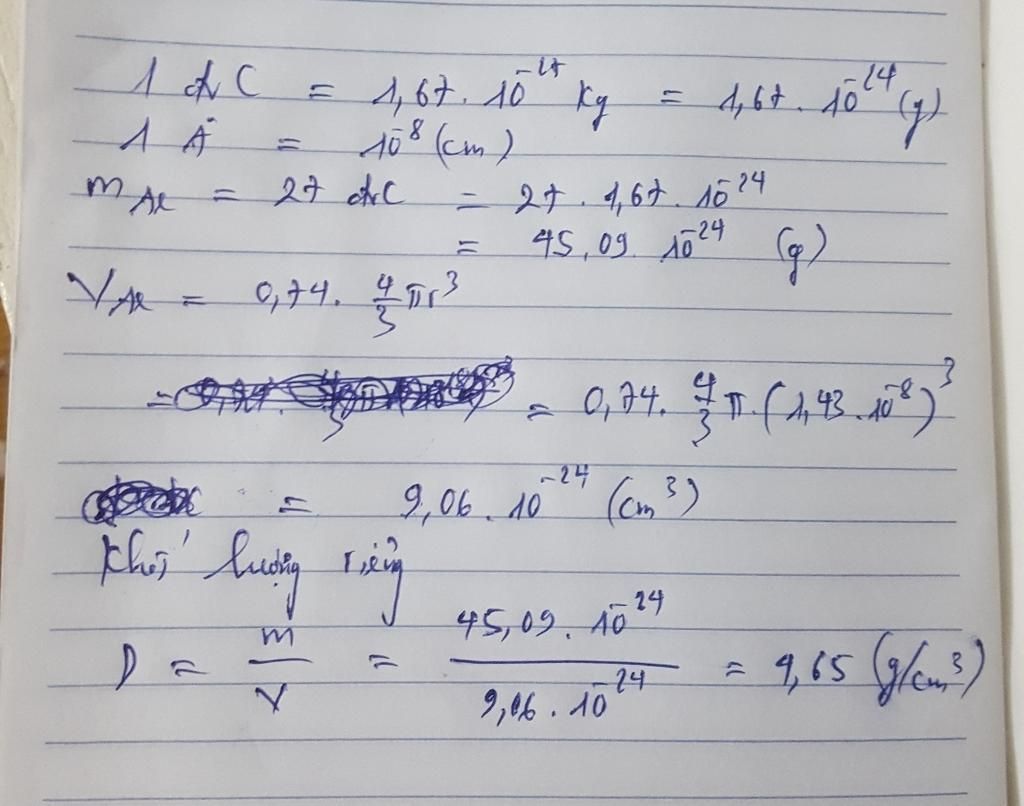 1 đvC = 1,67. 10^-27 Kg = 1,67. 10^-24 (g)
1 Å = 10^-8 (cm)
m Al = 27 đvC = 27. 1,67. 10^-24
= 45,09. 10^-24 (g)
V Al = 0,74. 4/3 πr^3
= = 0,74. 4/3 π. (1,43. 10^-8)^3
= 9,06. 10^-24 (cm^3)
Khối lượng riêng
D = m/V = 45,09. 10^-24 / 9,06. 10^-24 = 4,65 (g/cm^3)